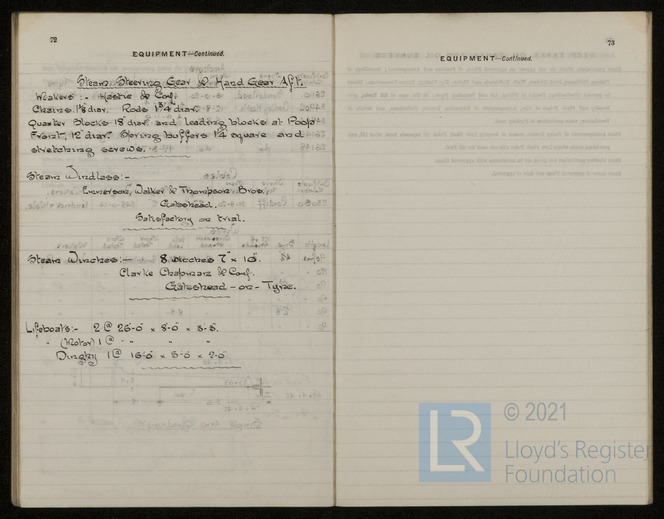 72
EQUIPMENT—Continued.
Steam Steering Gear & Hand Gear Aft.
Makers :- Hastie & Coy.
Chains 1⅛ diar. Rods 1¾" diar.
Quarter Blocks 18" diar. and leading blocks at Poop
Front, 12" diar. Spring buffers 1¼ square and
stretching screws.
Steam Windlass :-
Emmerson, Walker & Thompson Bros.
Gateshead.
Satisfactory on trial.
Steam Winches :- 8 7" × 10".
Clarke Chapman & Coy.
Gateshead - on - Tyne.
Lifeboats :- 2 @ 26-0 × 8-0 ×
" (Motor) 1 @ " " "
Dinghy 1 @ 16-0 × × 2-0
73
EQUIPMENT—Continued.
LR
© 2021
Lloyd's Register
Foundation